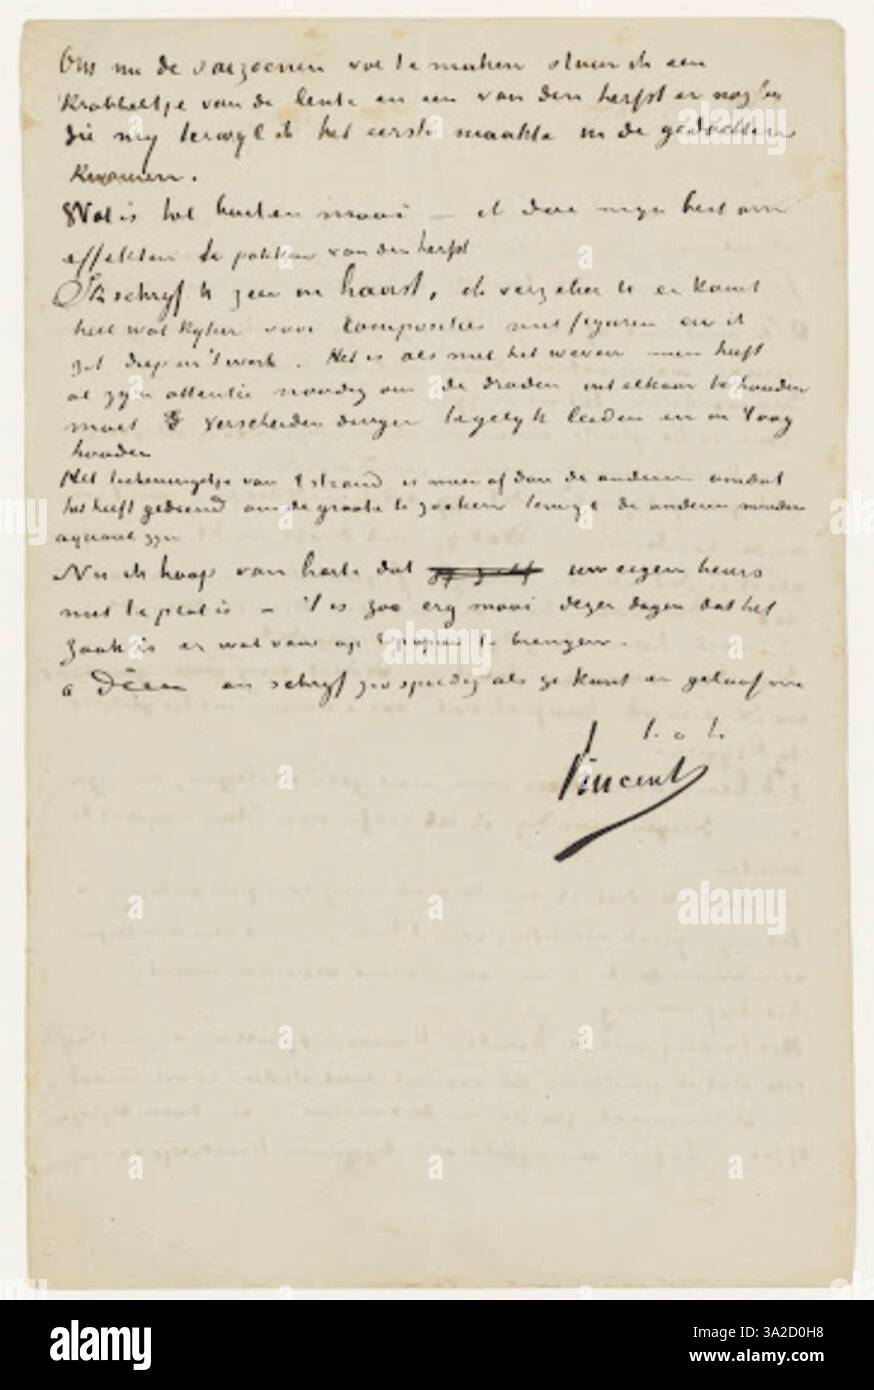 Om nu de saizoenen vol te maken stuur ik een
krabbeltje van de lente en een van den herfst er nog bij
die my terwyl ik het eerste maakte in de gedachten
kwamen.
Wat is het buiten mooi – ik doe myn best om
effekten te pakken van den herfst
Ik schryf U zeer in haast, ik verzeker U er komt
heel wat kyken voor composities met figuren en ik
zit diep in 't werk. Het is als met het weven men heeft
al zyn attentie noodig om de draden uit elkaar te houden
moet verscheiden dingen tegelyk leiden en in 't oog
houden
Het teekeningetje van 't strand is meer af dan de anderen omdat
het heeft gediend om de grootte te zoeken terwyl de anderen
aquarel zyn
Nu ik hoop van harte dat uw eigen heurs
niet te plat is – 't is zoo erg mooi dezer dagen dat het
zaak is er wat van op 't papier te brengen.
à Dieu en schryf zoo spoedig als ge kunt en geloof me
t. à t.
Vincent
alamy
alamy
Image ID: 3A2D0H8
www.alamy.com